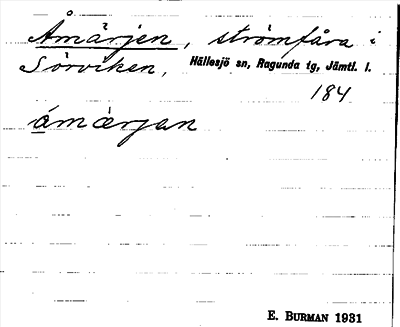 Åmärjen, strömfåra i
Sörviken, Hällesjö sn, Ragunda tg, Jämtl. l.
184
ámärjan
E. BURMAN 1931